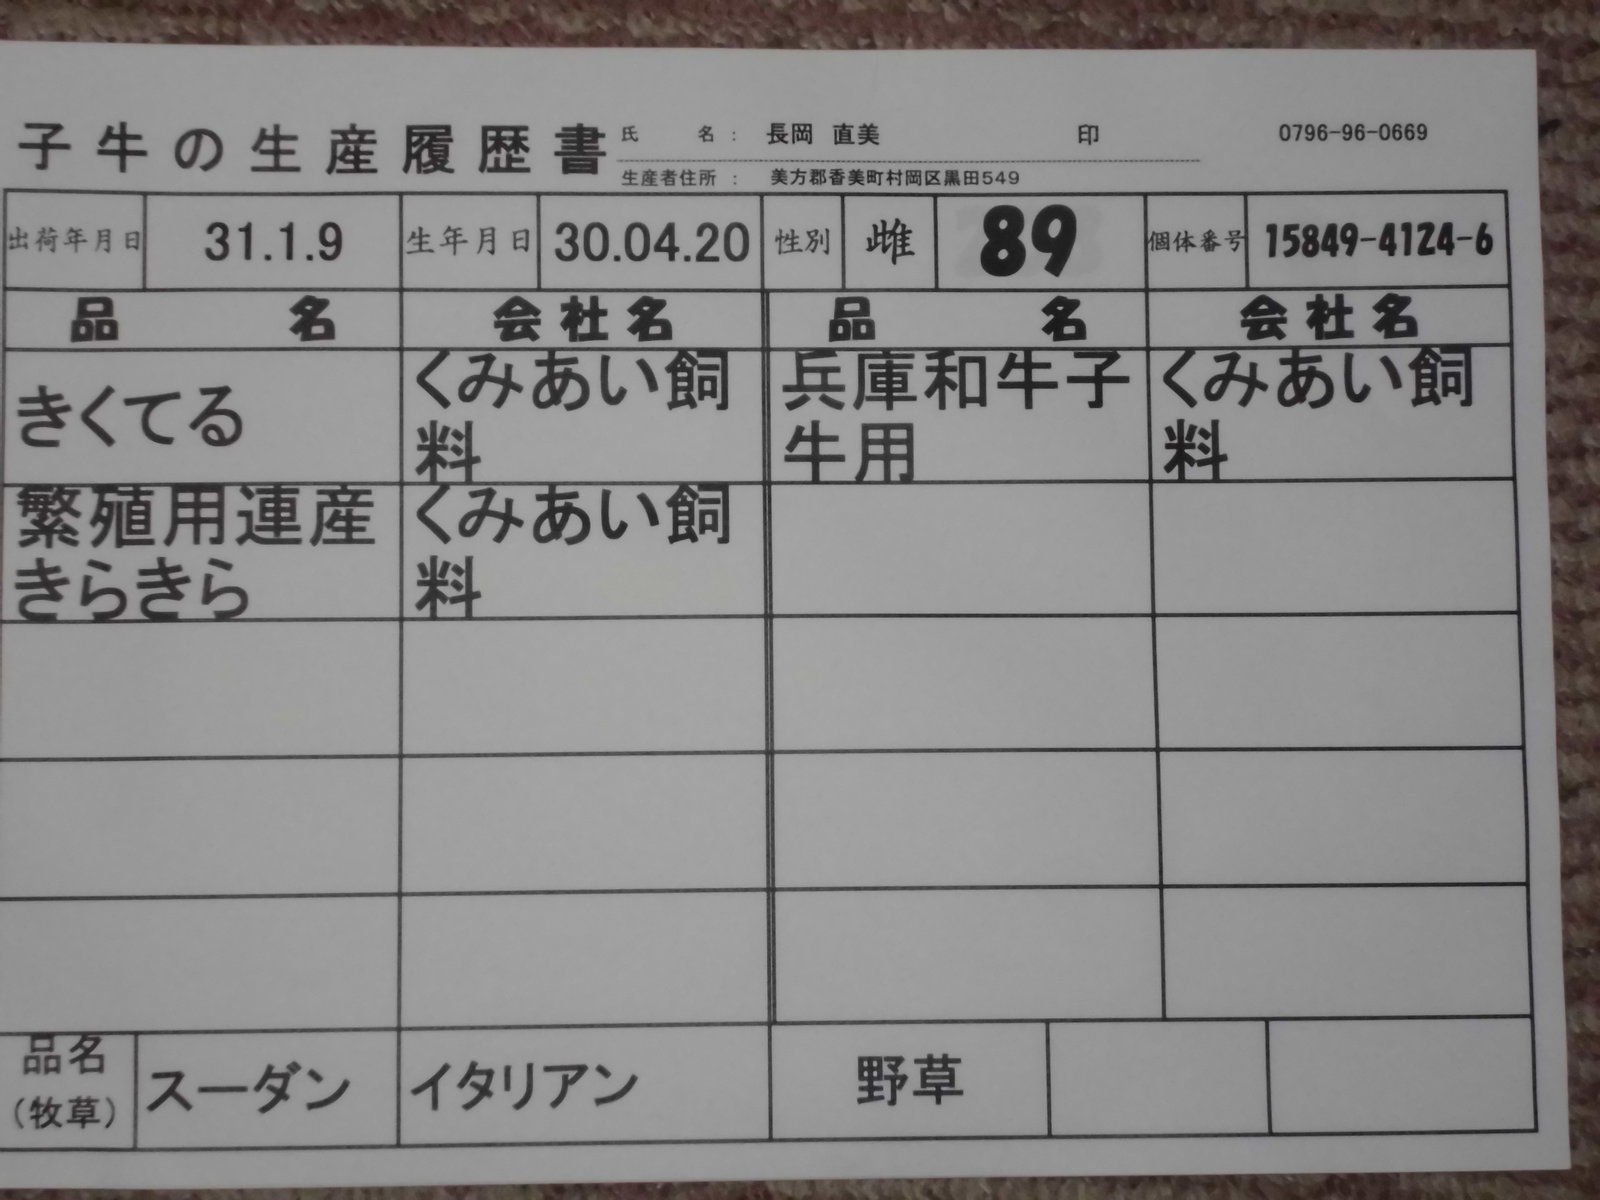 子牛の生産履歴書 氏 名： 長岡 直美 印 0796-96-0669
生産者住所 ： 美方郡香美町村岡区黒田549
出荷年月日 31.1.9 生年月日 30.04.20 性別 雌 89 個体番号 15849-4124-6
品 名 会社名 品 名 会社名
きくてる くみあい飼料 兵庫和牛子牛用 くみあい飼料
繁殖用連産きらきら くみあい飼料
品名（牧草） スーダン イタリアン 野草